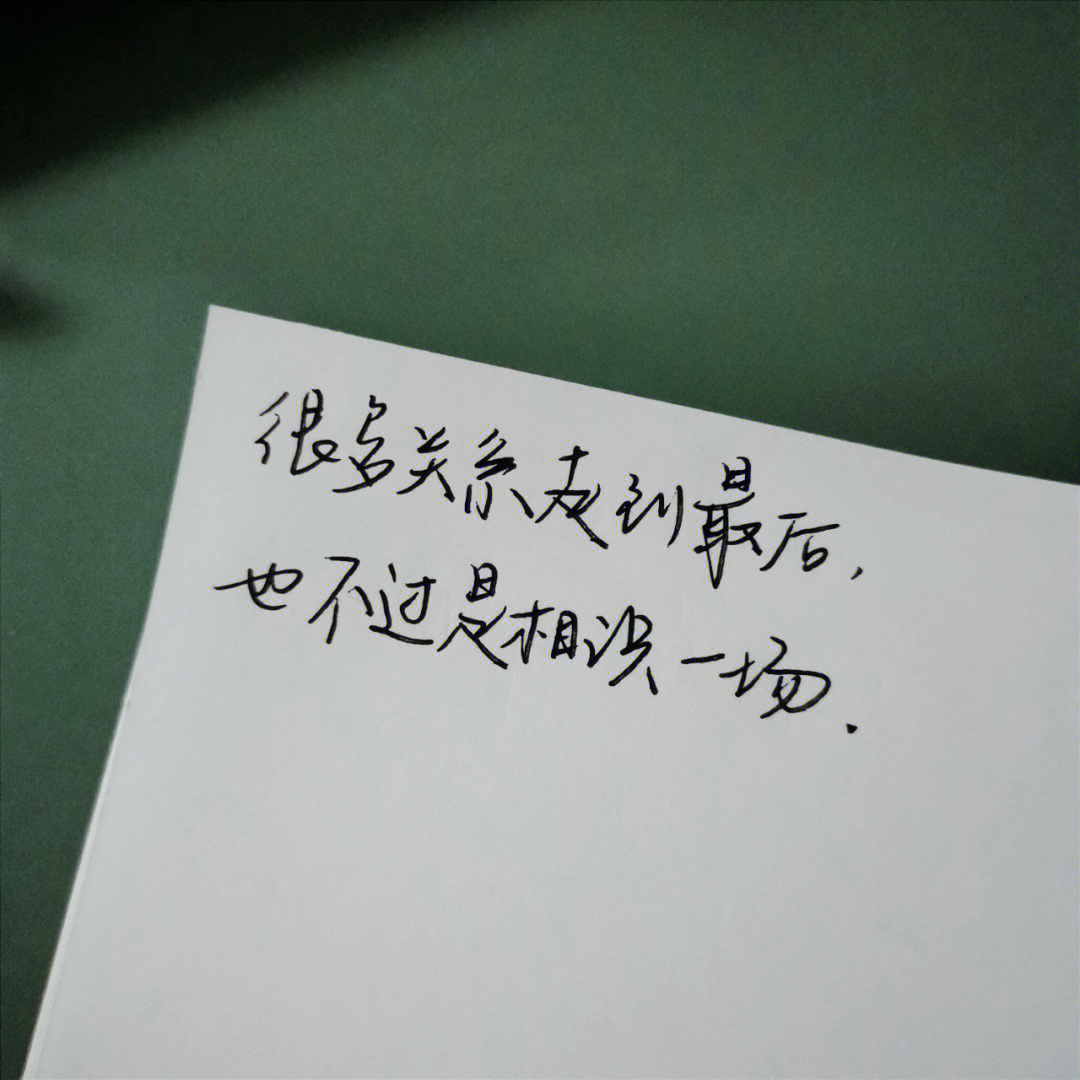 很多关系走到最后,
也不过是相识一场.